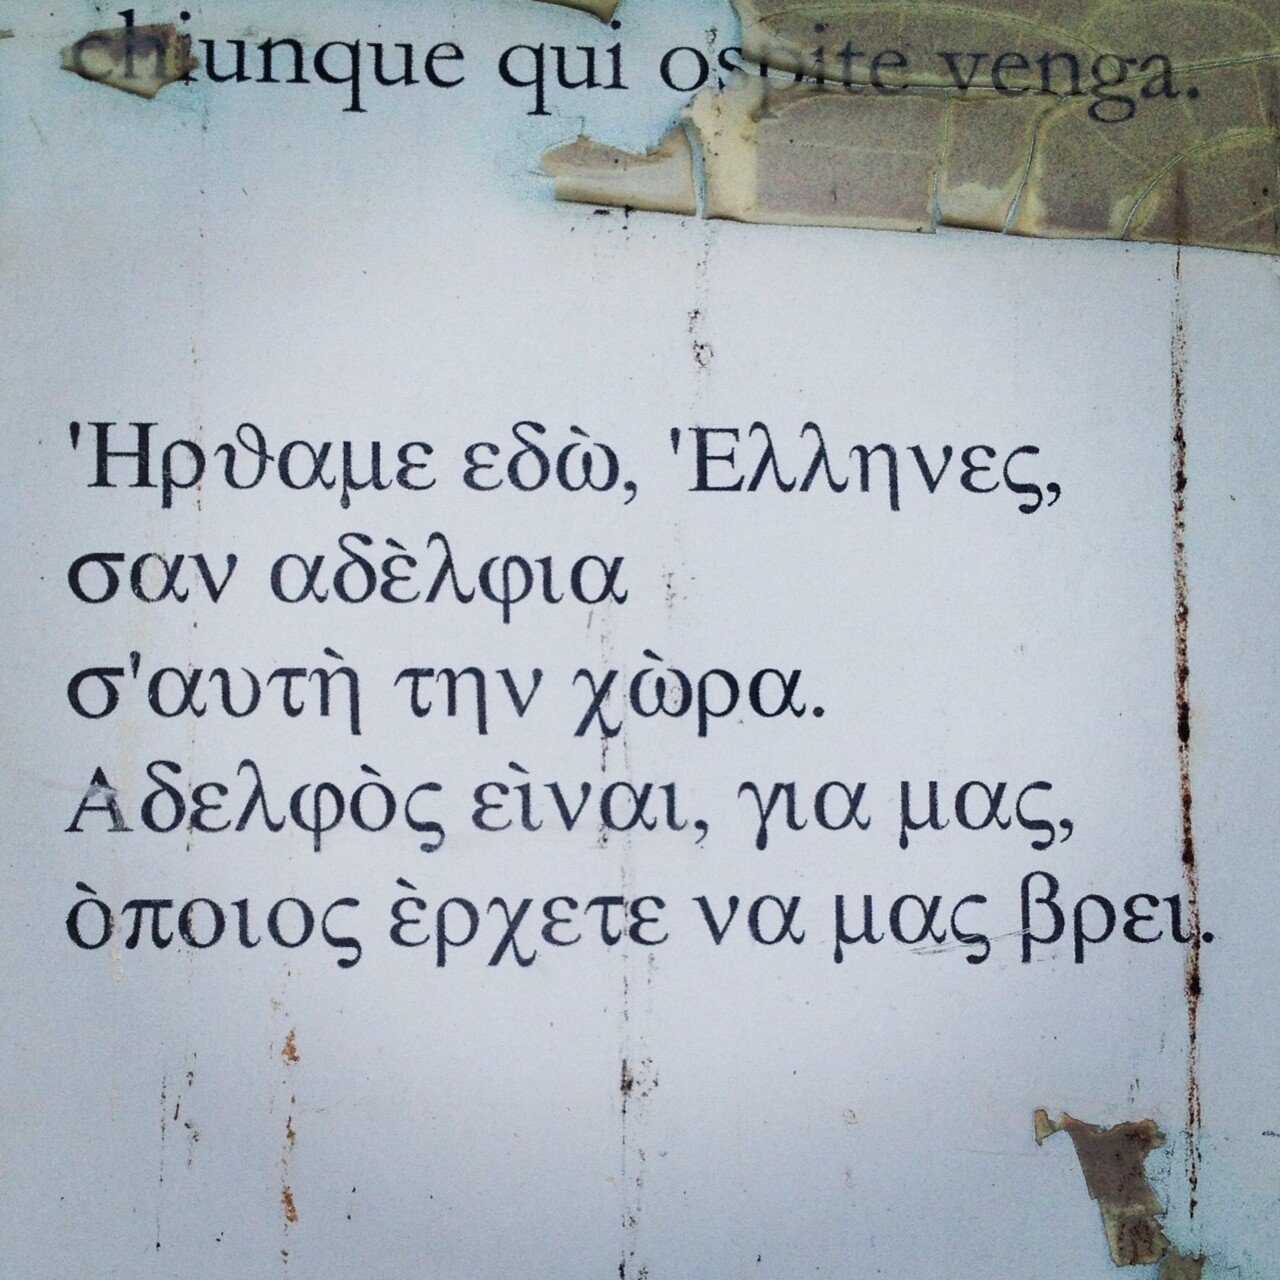 chiunque qui ospite venga.
'Ηρθαμε εδὼ, 'Ελληνες,
σαν αδὲλφια
σ'αυτὴ την χὼρα.
Αδελφὸς εὶναι, για μας,
ὸποιος ὲρχετε να μας βρει.